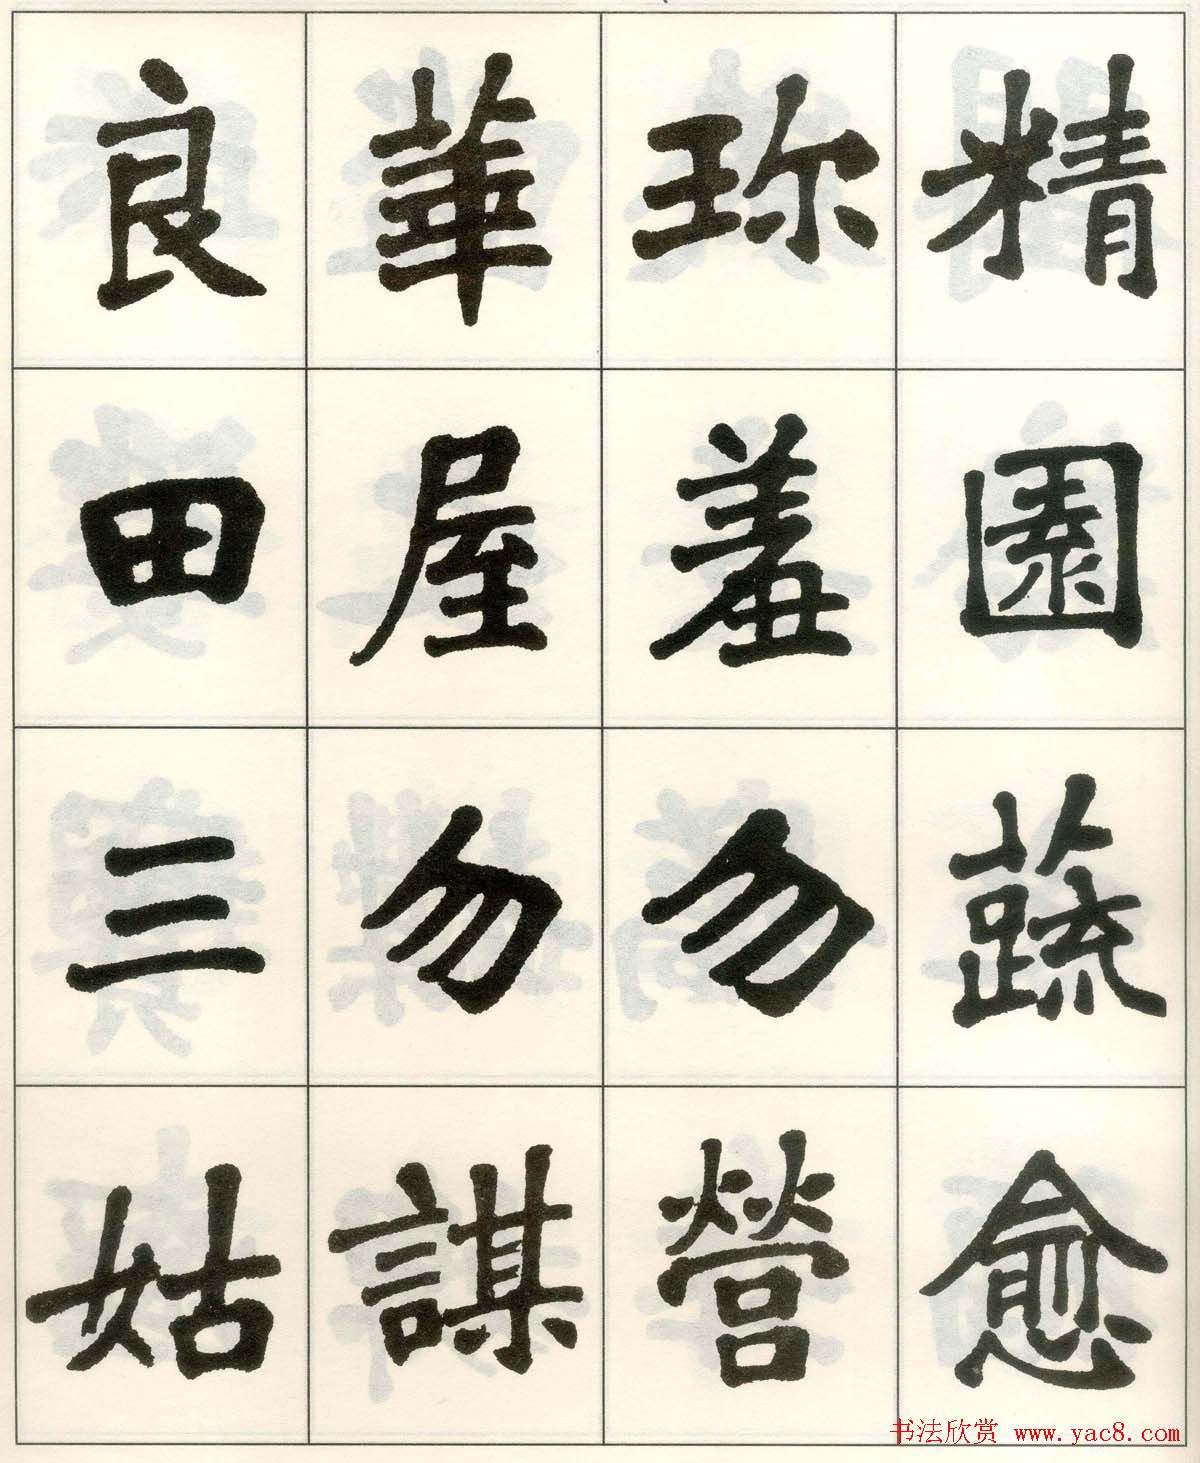 精園蔬愈
珎羞勿營
華屋勿謀
良田三姑
书法欣赏 www.yac8.com